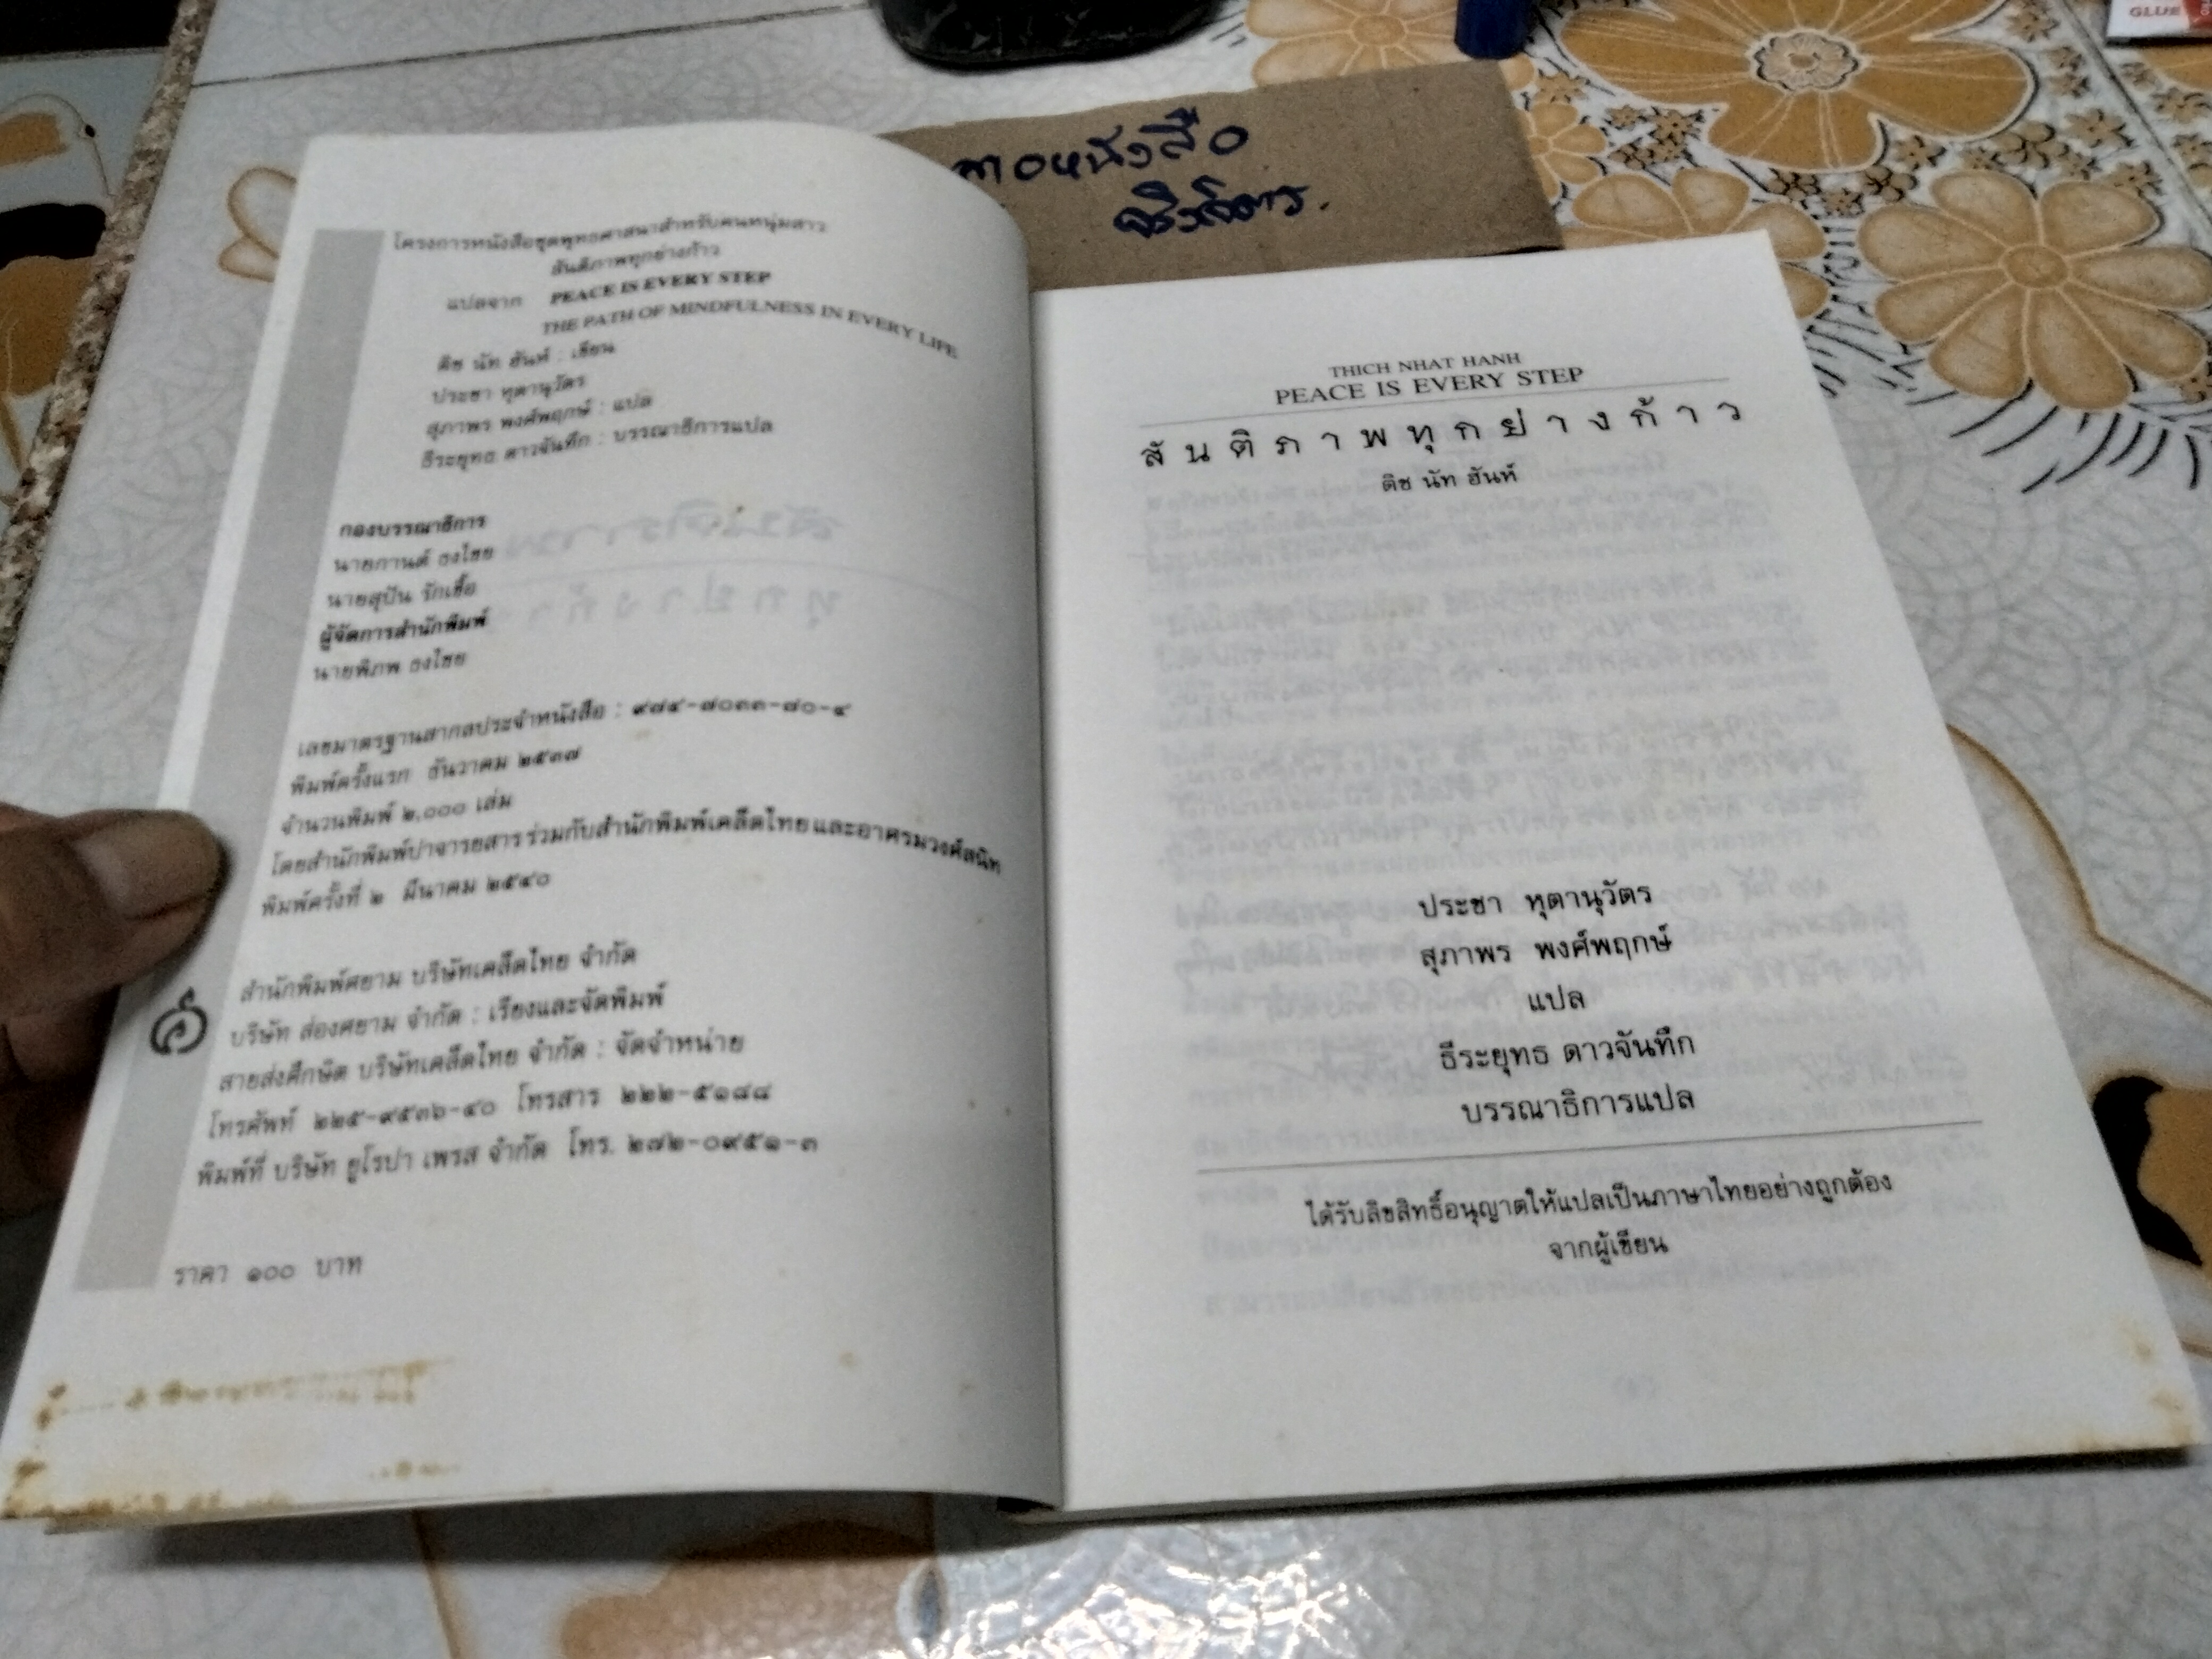 โครงการหนังสือชุดพุทธศาสนาสำหรับคนหนุ่มสาว
สันติภาพทุกย่างก้าว
แปลจาก PEACE IS EVERY STEP
THE PATH OF MINDFULNESS IN EVERY LIFE
ติช นัท ฮันห์ : เขียน
ประชา หุตานุวัตร
สุภาพร พงศ์พฤกษ์ : แปล
ธีระยุทธ ดาวจันทึก : บรรณาธิการแปล
กองบรรณาธิการ
นายกานต์ ธงไชย
นายสุปัน รักเชื้อ
ผู้จัดการสำนักพิมพ์
นายพิภพ ธงไชย
เลขมาตรฐานสากลประจำหนังสือ : ๙๗๔-๗๐๓๓-๗๐-๔
พิมพ์ครั้งแรก ธันวาคม ๒๕๓๗
จำนวนพิมพ์ ๒,๐๐๐ เล่ม
โดยสำนักพิมพ์ปาจารยสาร ร่วมกับสำนักพิมพ์เคล็ดไทย และอาศรมวงศ์สนิท
พิมพ์ครั้งที่ ๒ มีนาคม ๒๕๔๐
สำนักพิมพ์ศยาม บริษัทเคล็ดไทย จำกัด
บริษัท ส่องศยาม จำกัด : เรียงและจัดพิมพ์
สายส่งศึกษิต บริษัทเคล็ดไทย จำกัด : จัดจำหน่าย
โทรศัพท์ ๒๒๕-๙๕๓๖-๔๐ โทรสาร ๒๒๒-๕๑๘๘
พิมพ์ที่ บริษัท ยูโรปา เพรส จำกัด โทร. ๒๗๒-๐๙๕๑-๓
ราคา ๑๐๐ บาท
หนังสือ
GLUE
THICH NHAT HANH
PEACE IS EVERY STEP
สันติภาพทุกย่างก้าว
ติช นัท ฮันห์
ประชา หุตานุวัตร
สุภาพร พงศ์พฤกษ์
แปล
ธีระยุทธ ดาวจันทึก
บรรณาธิการแปล
ได้รับลิขสิทธิ์อนุญาตให้แปลเป็นภาษาไทยอย่างถูกต้อง
จากผู้เขียน